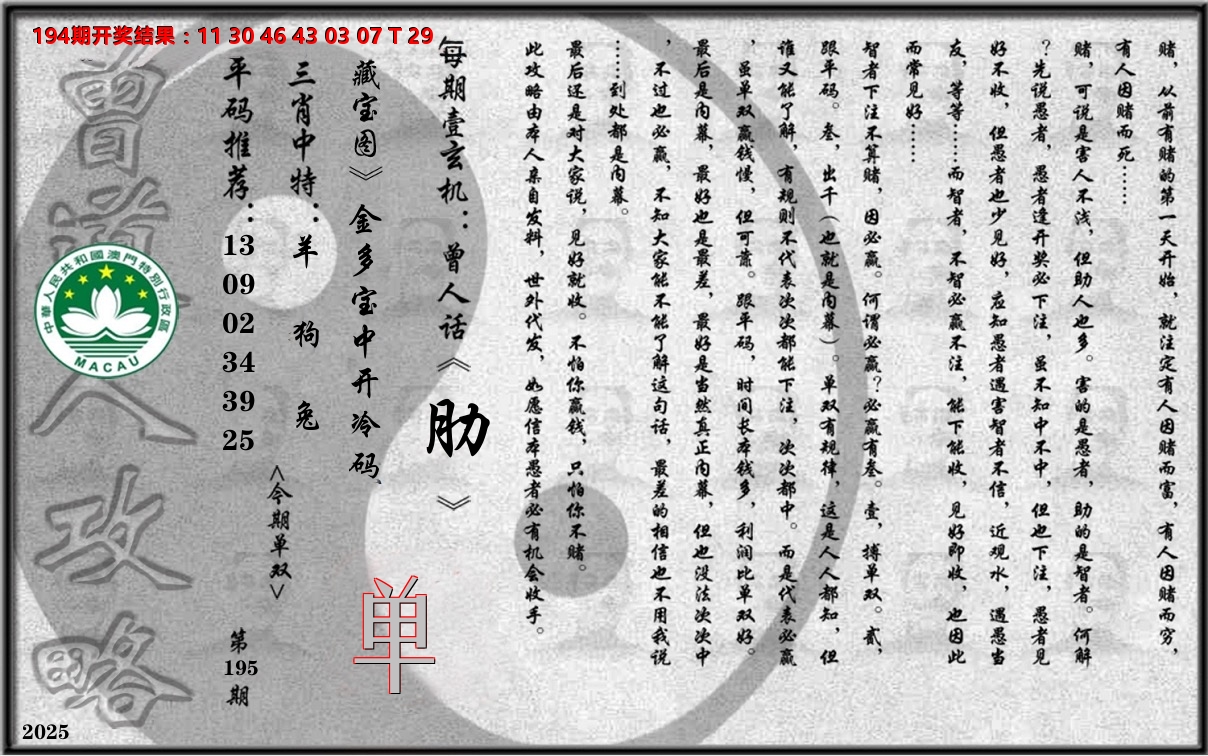 194期开奖结果：11 30 46 43 03 07 T 29
赌，从前有赌的第一天开始，就注定有人因赌而富，有人因赌而穷，
有人因赌而死……
赌，可说是害人不浅，但助人也多。害的是愚者，助的是智者。何解
？先说愚者，愚者逢开奖必下注，虽不知中不中，但也下注，愚者见
好不收，但愚者也少见好，应知愚者遇害智者不信，近观水，遇愚当
友，等等……而智者，不智必赢不注，能下能收，见好即收，也因此
而常见好……
智者下注不算赌，因必赢。何谓必赢？必赢有叁。壹，搏单双。贰，
跟平码。叁，出千（也就是内幕）。单双有规律，这是人人都知，但
谁又能了解，有规则不代表次次都能下注，次次都中。而是代表必赢
，虽单双赢钱慢，但可靠。跟平码，时间长本钱多，利润比单双好。
最后是内幕，最好也是最差，最好是当然真正内幕，但也没法次次中
，不过也必赢，不知大家能不能了解这句话，最差的相信也不用我说
……到处都是内幕。
最后还是对大家说，见好就收。不怕你赢钱，只怕你不赌。
此攻略由本人亲自发料，世外代发，如愿信本愚者必有机会收手。
每期壹玄机：曾人话《肋》
藏宝图》金多宝中开冷码
单
三肖中特：羊 狗 兔
<今期单双>
平码推荐：13 09 02 34 39 25
第195期
曾道人攻略
中華人民共和國澳門特別行政區
MACAU
2025